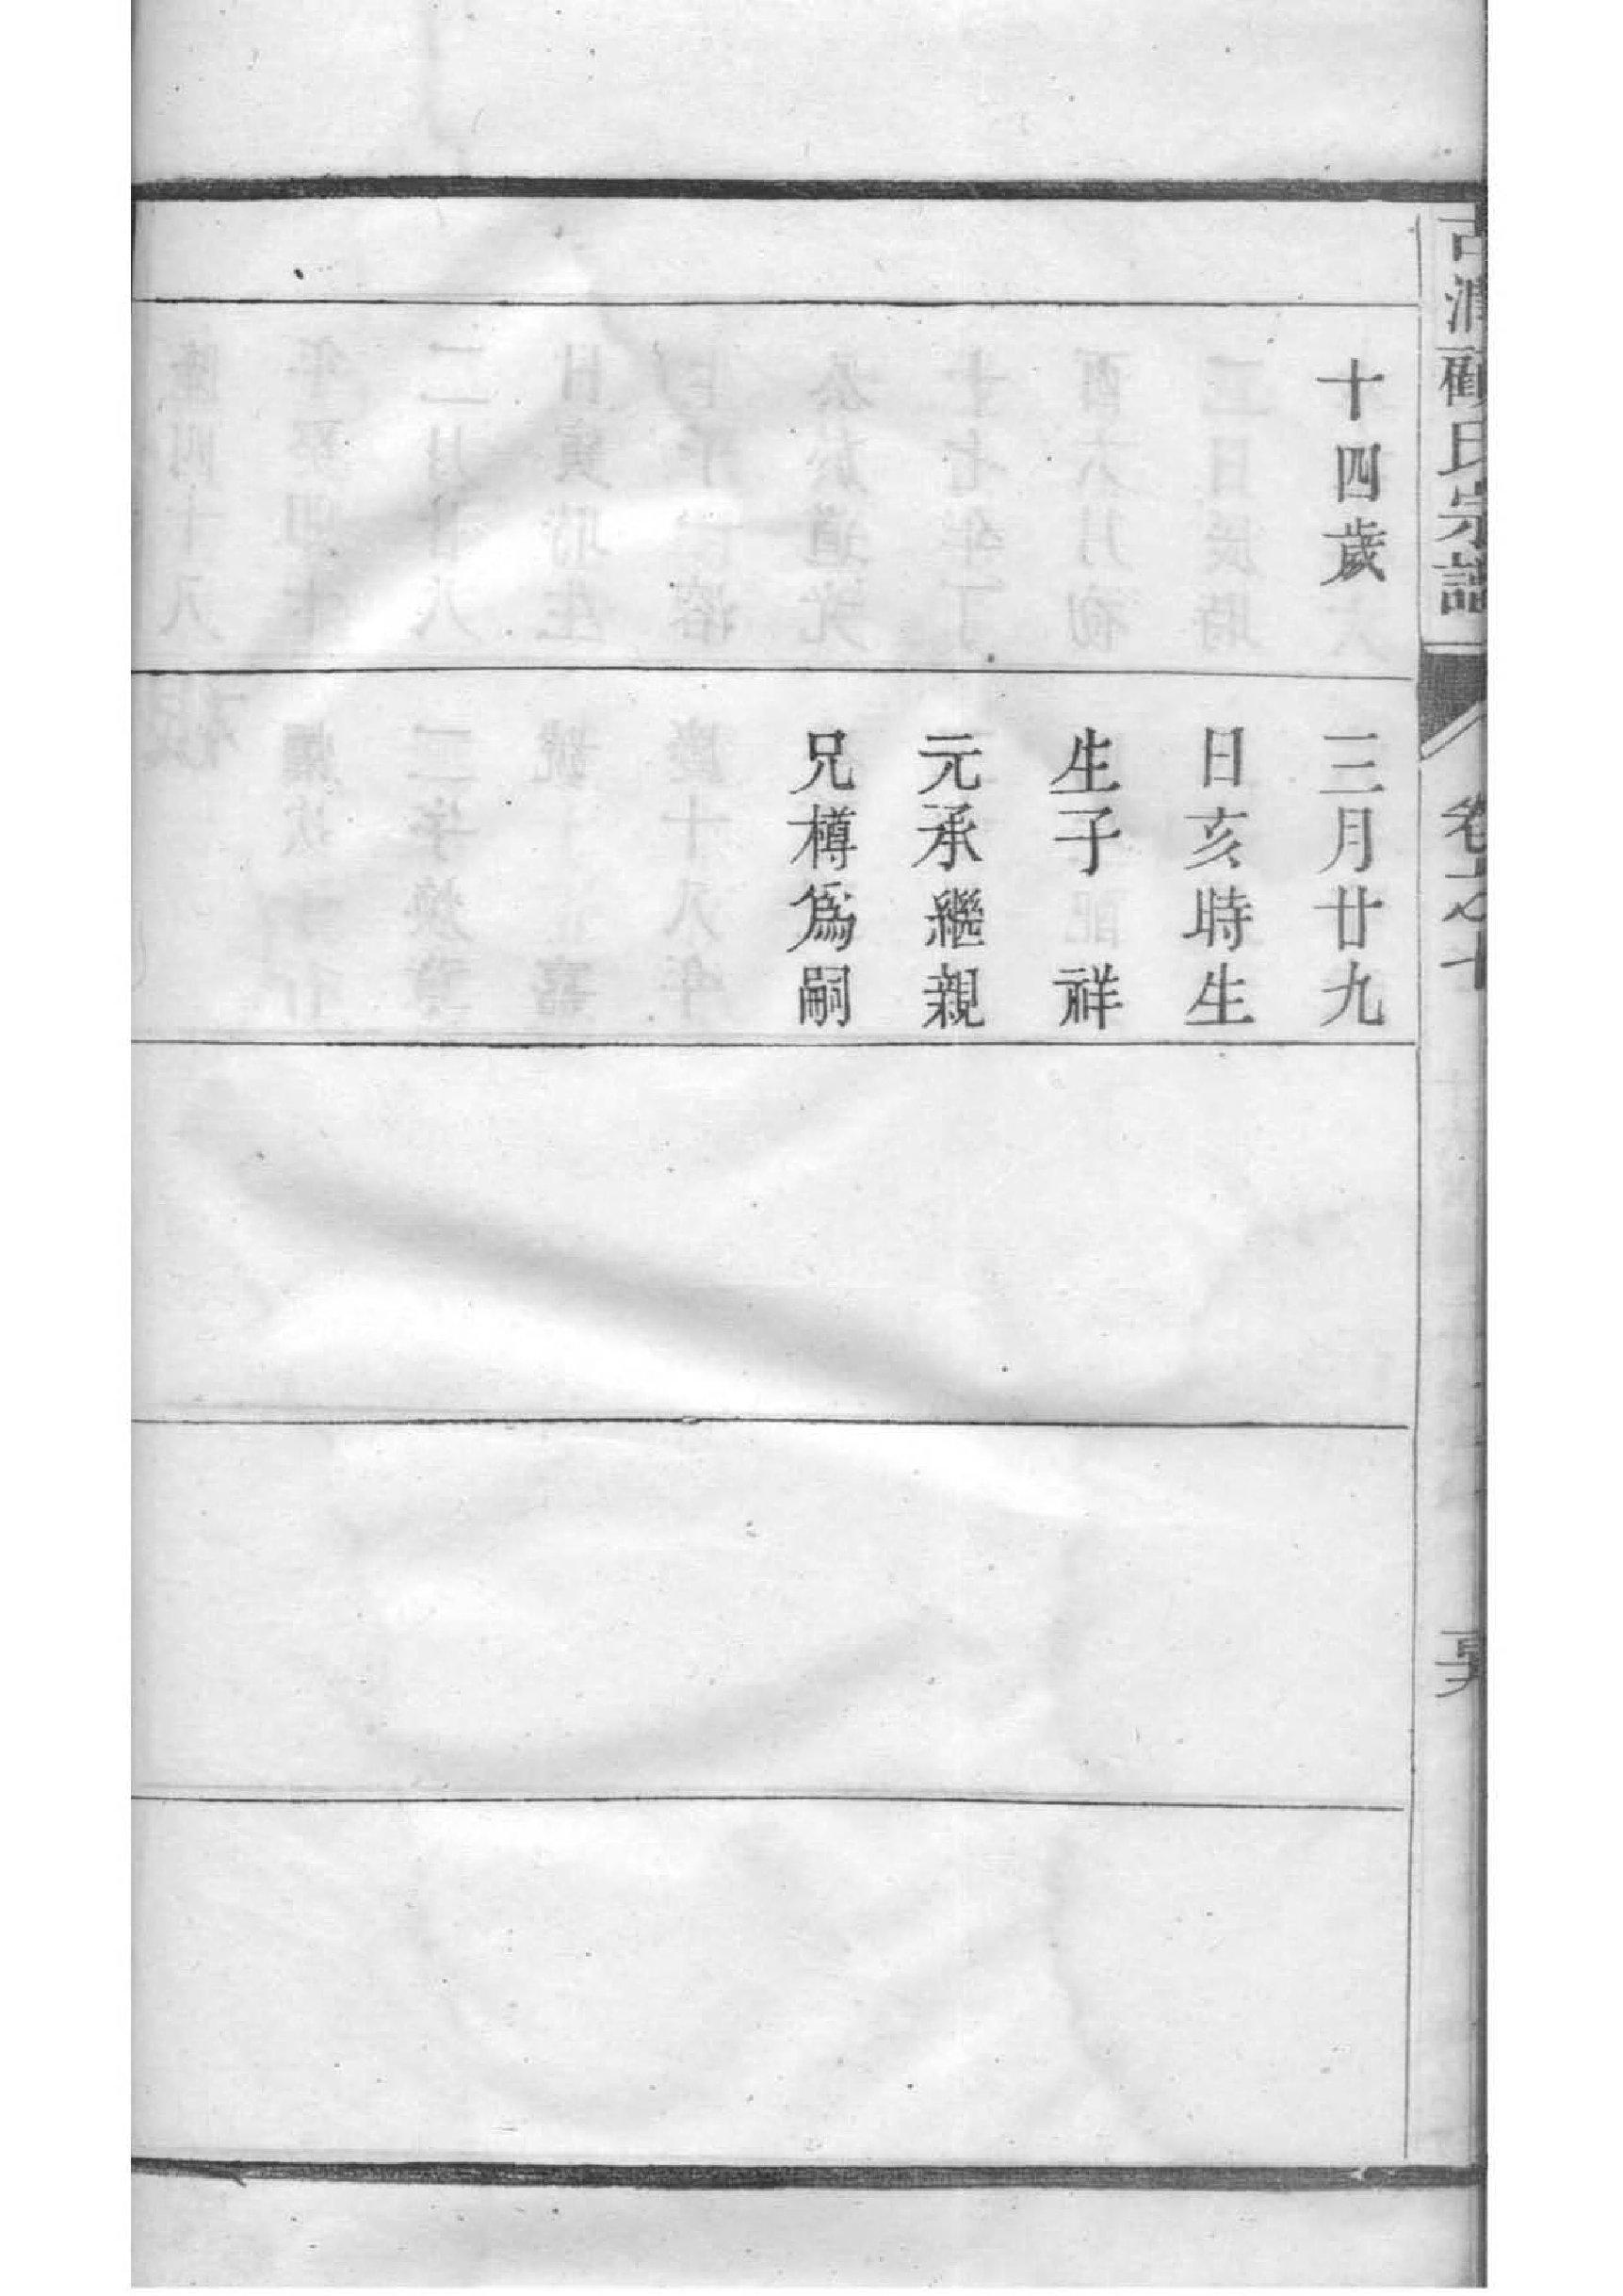 古湞顧氏宗譜 卷之十
十四歲
三月廿九
日亥時生
生子祥
元承繼親
兄樽爲嗣